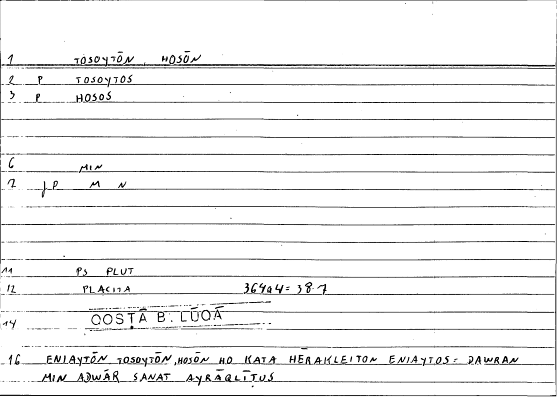 1 TOSOYTŌN, HOSŌN
2 P TOSOYTOS
3 P HOSOS
6 MIN
7 JP M N
11 PS PLUT
12 PLACITA 364a4 = 38.7
14 QOSṬĀ B. LŪQĀ
16 ENIAYTŌN TOSOYTŌN, HOSŌN HO KATA HĒRAKLEITON ENIAYTOS = DAWRAN
MIN ADWĀR SANAT AYRĀQLĪṬUS